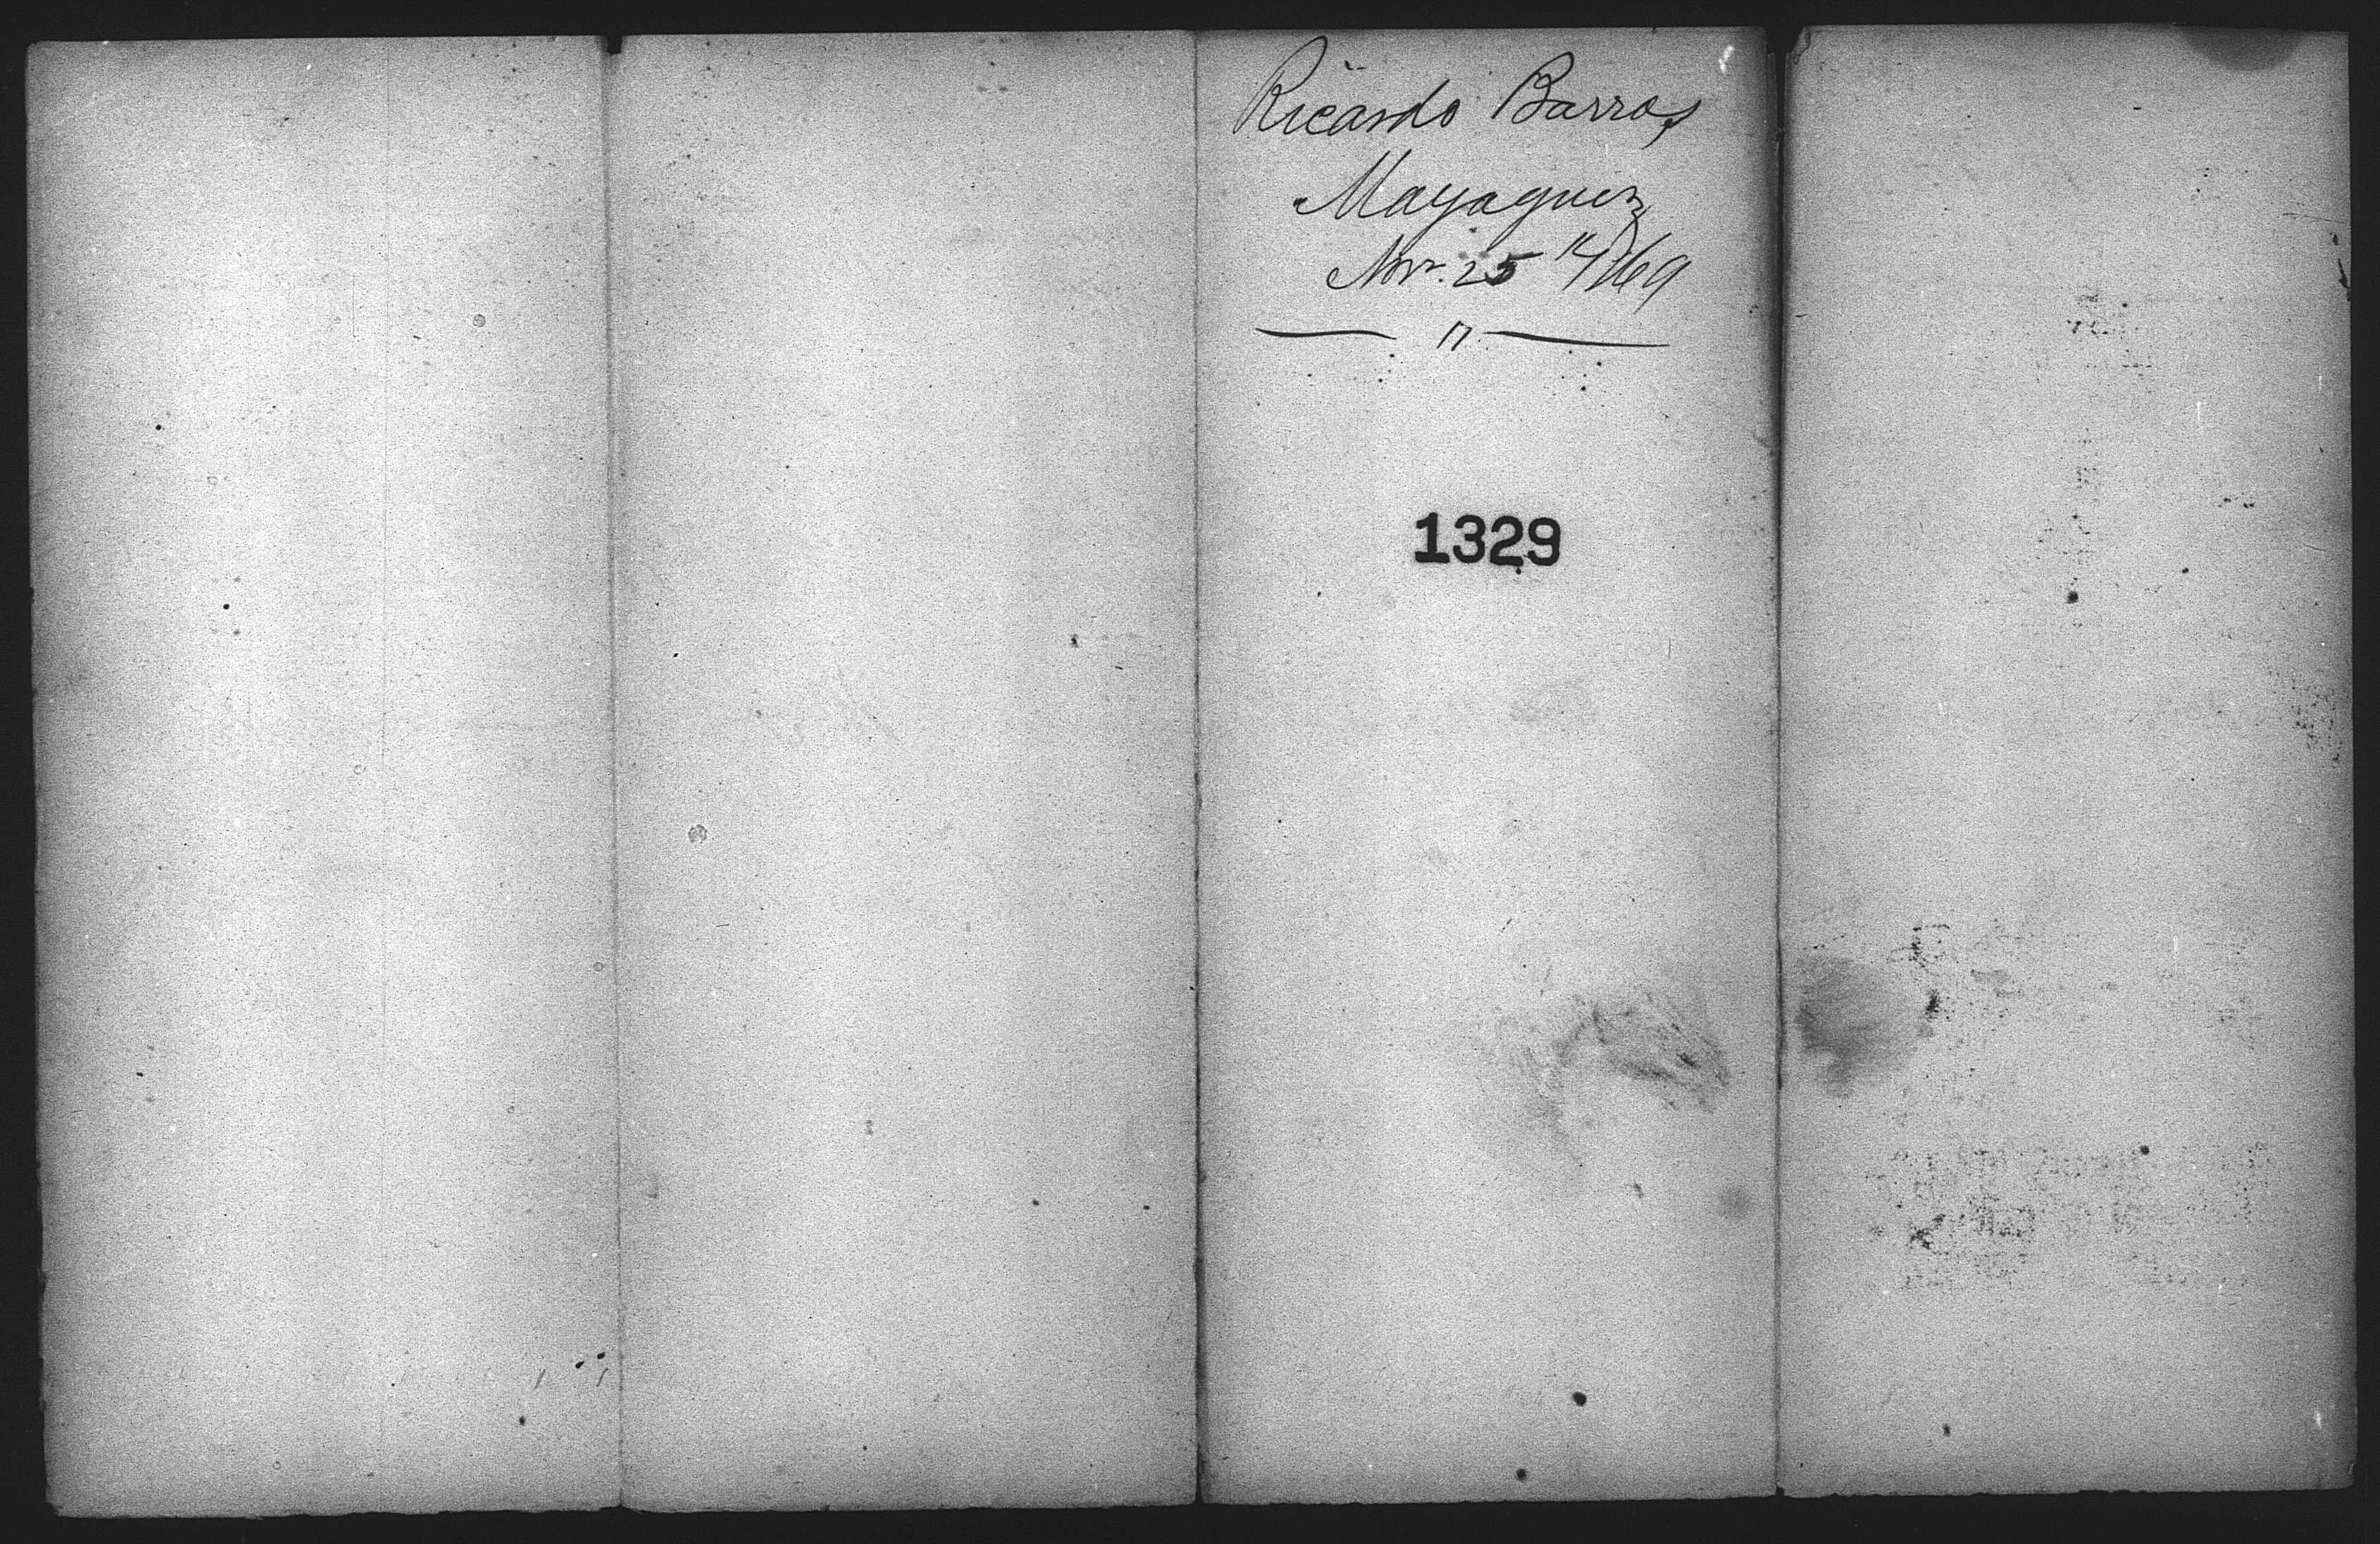 Ricardo Barros
Mayaguez
Nov. 25 1869
1329